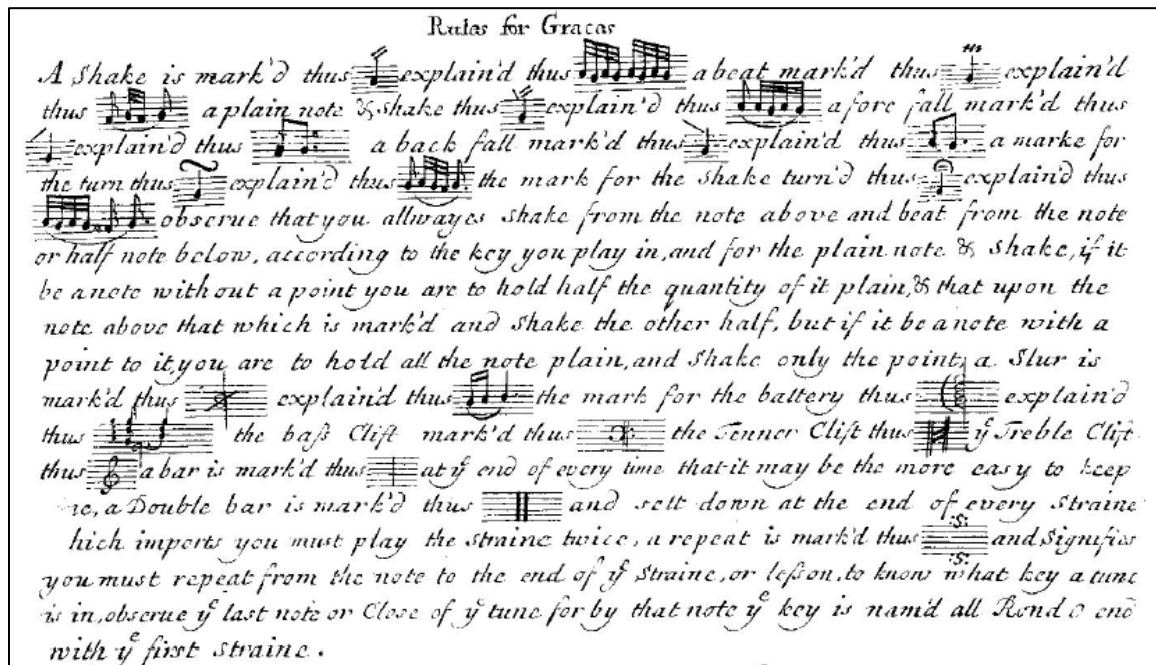 Rules for Graces
A Shake is mark'd thus explain'd thus a beat mark'd thus explain'd
thus a plain note & shake thus explain'd thus a fore fall mark'd thus
explain'd thus a back fall mark'd thus explain'd thus a marke for
the turn thus explain'd thus the mark for the shake turn'd thus explain'd thus
obserue that you allwayes shake from the note above and beat from the note
or half note below, according to the key you play in, and for the plain note & shake, if it
be a note without a point you are to hold half the quantity of it plain, & that upon the
note above that which is mark'd and shake the other half, but if it be a note with a
point to it, you are to hold all the note plain, and shake only the point, a Slur is
mark'd thus explain'd thus the mark for the battery thus explain'd
thus the baſs Clift mark'd thus the Tenner Clift thus yͤ Treble Clift
thus a bar is mark'd thus at yͤ end of every time that it may be the more easy to keep
a Double bar is mark'd thus and sett down at the end of every Straine
hich imports you must play the straine twice, a repeat is mark'd thus :S: :S: and Signifies
you must repeat from the note to the end of yͤ Straine, or leſson, to know what key a tune
is in, obserue yͤ last note or Close of yͤ tune for by that note yͤ key is nam'd all Rond O end
with yͤ first straine.